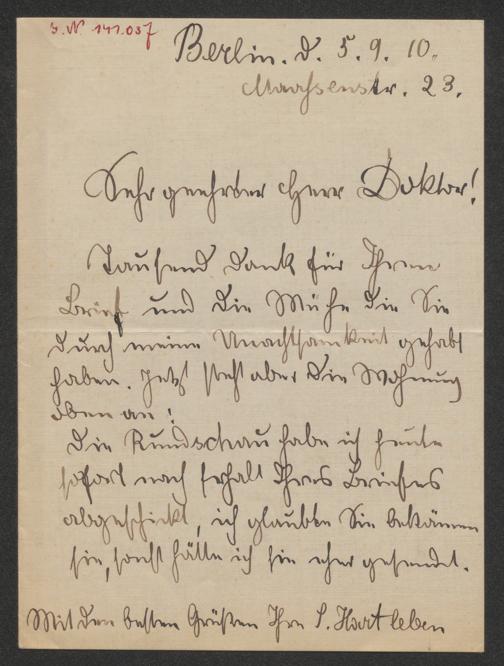 J. N. 141.037
Berlin. d. 5. 9. 10.
Maaßenstr. 23.
Sehr geehrter Herr Doktor!
Tausend Dank für Ihren
Brief und die Mühe die Sie
durch meine Unachtsamkeit gehabt
haben. Jetzt steht aber die Wohnung
oben an!
Die Rundschau habe ich heute
sofort nach Erhalt Ihres Briefes
abgeschickt, ich glaubte Sie bekämen
sie, sonst hätte ich sie eher gesendet.
Mit den besten Grüßen Ihre S. Hartleben